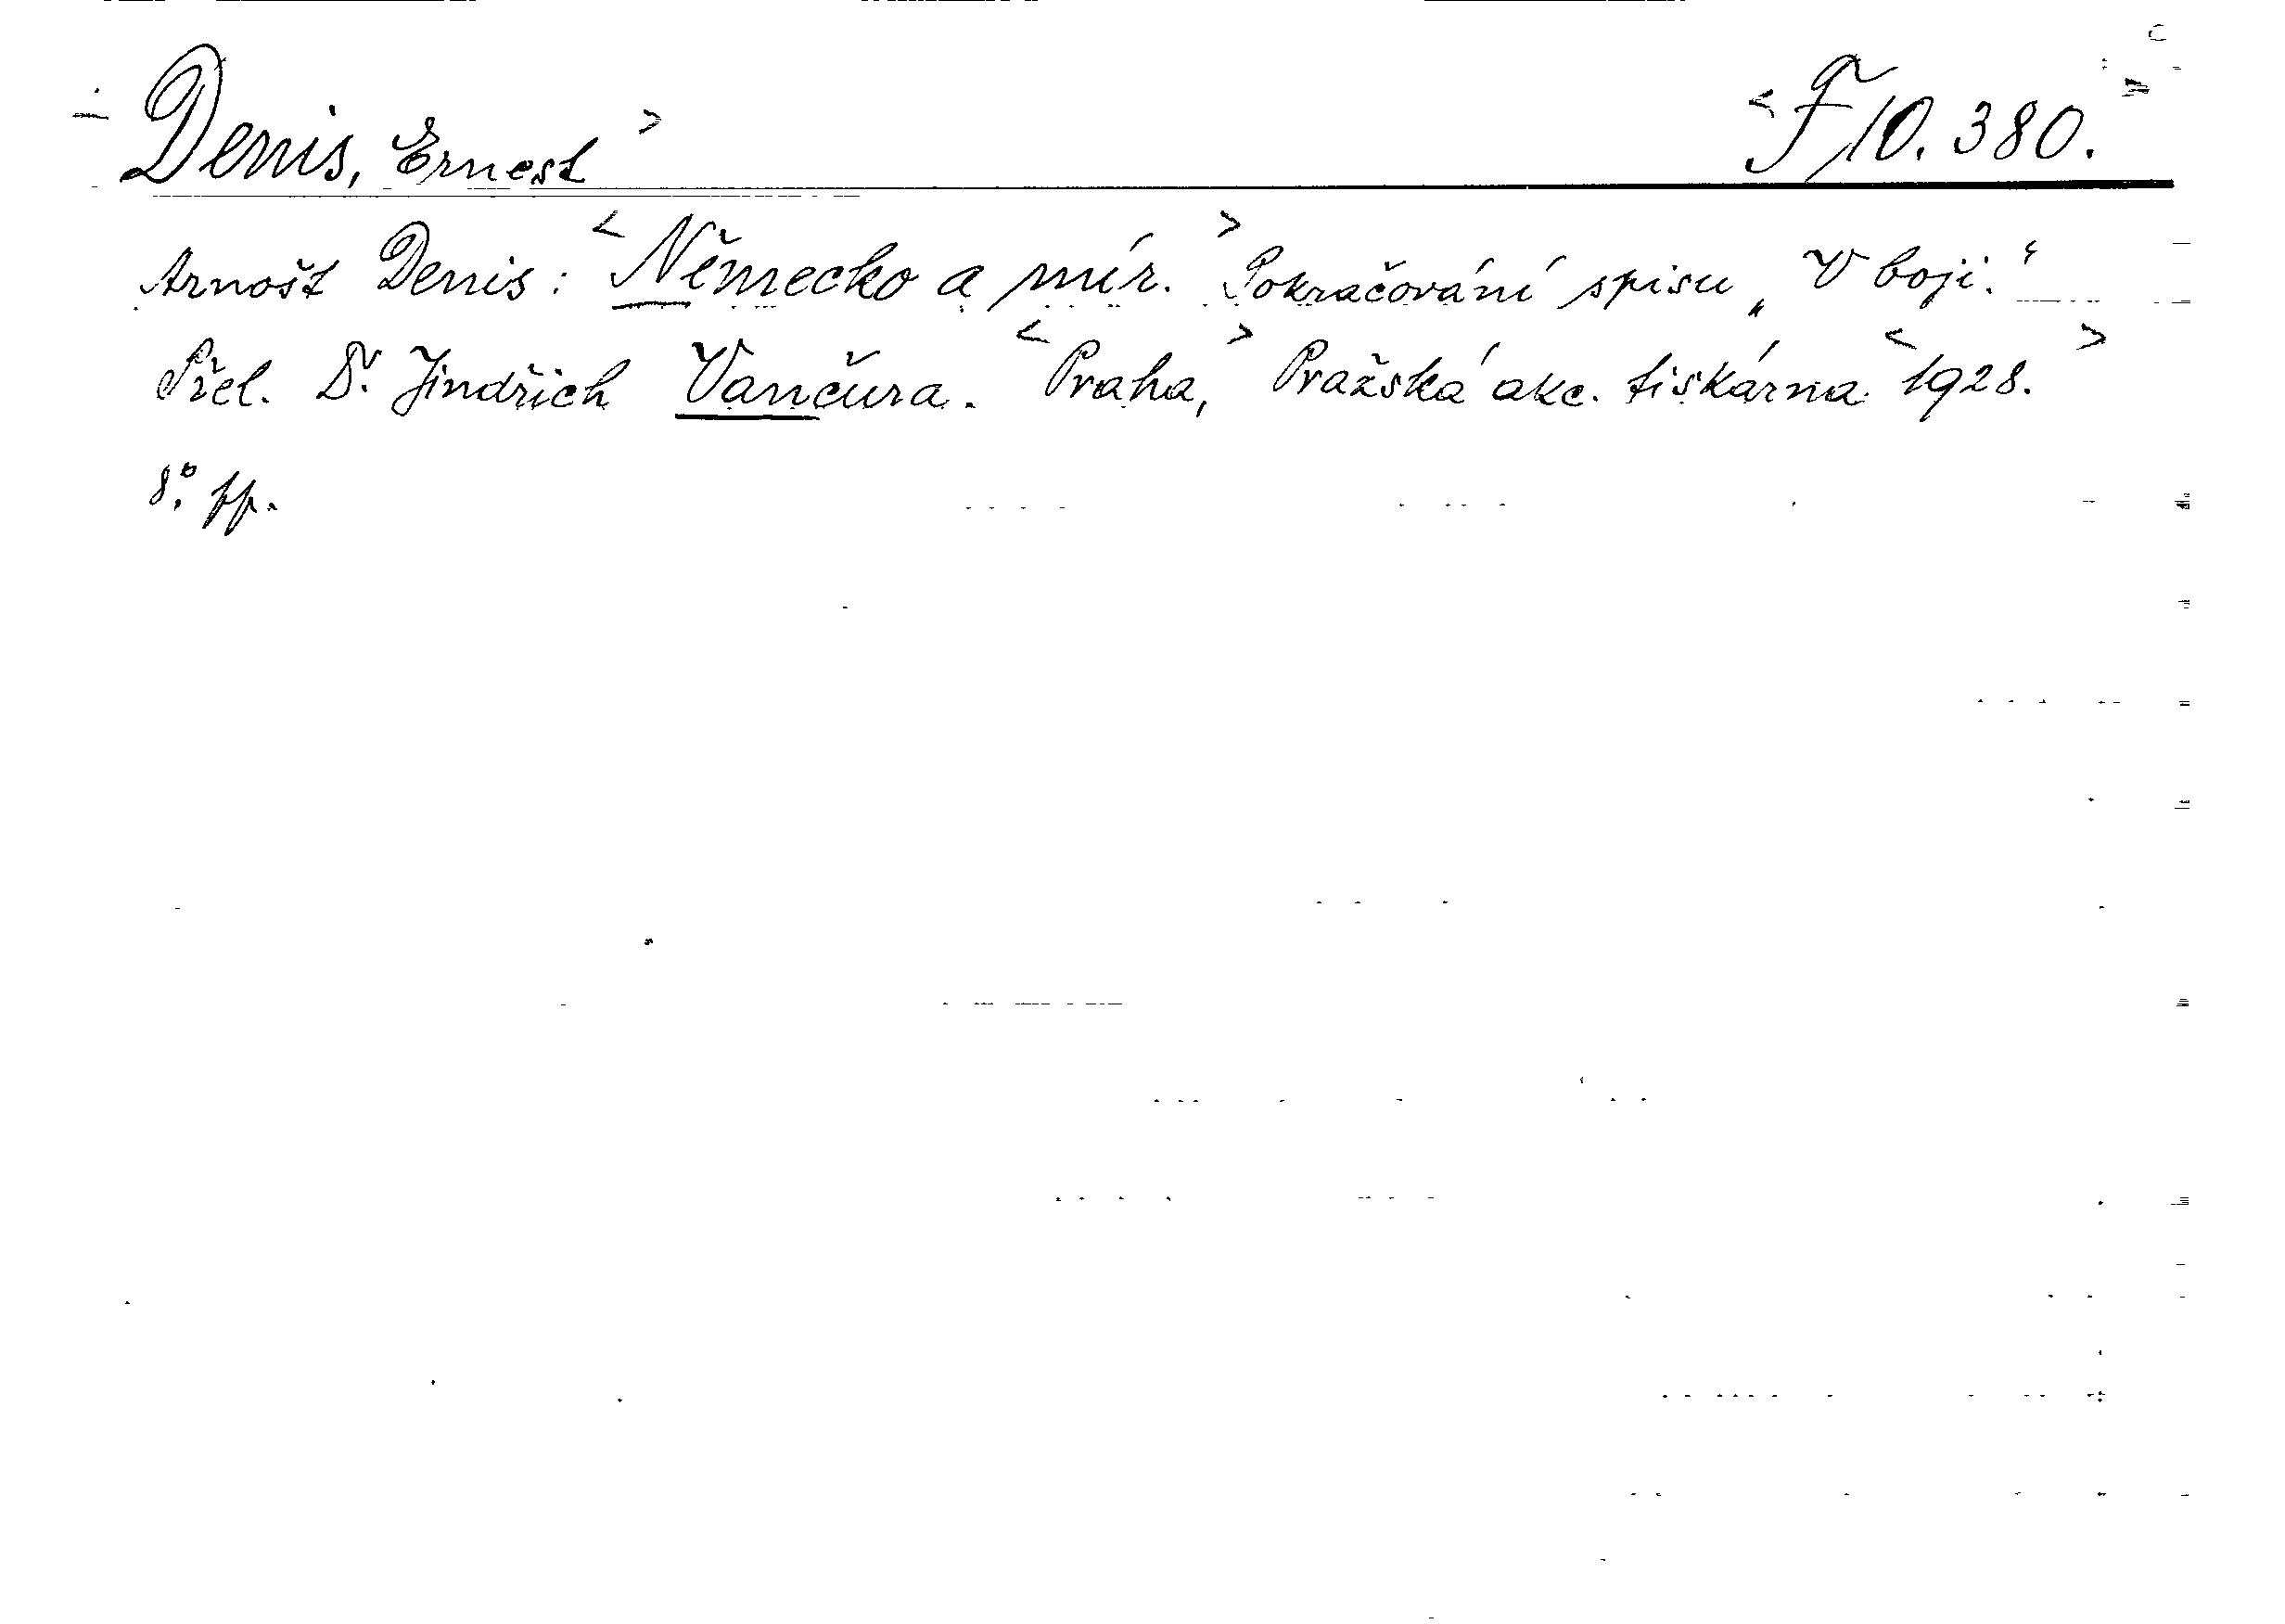 Denis, Ernest > < F 10.380. >
Arnošt Denis: < Německo a mír. > Pokračování spisu „V boji.“
Přel. Dr. Jindřich Vančura. < Praha, > Pražská akc. tiskárna. < 1928. >
8°. pp.